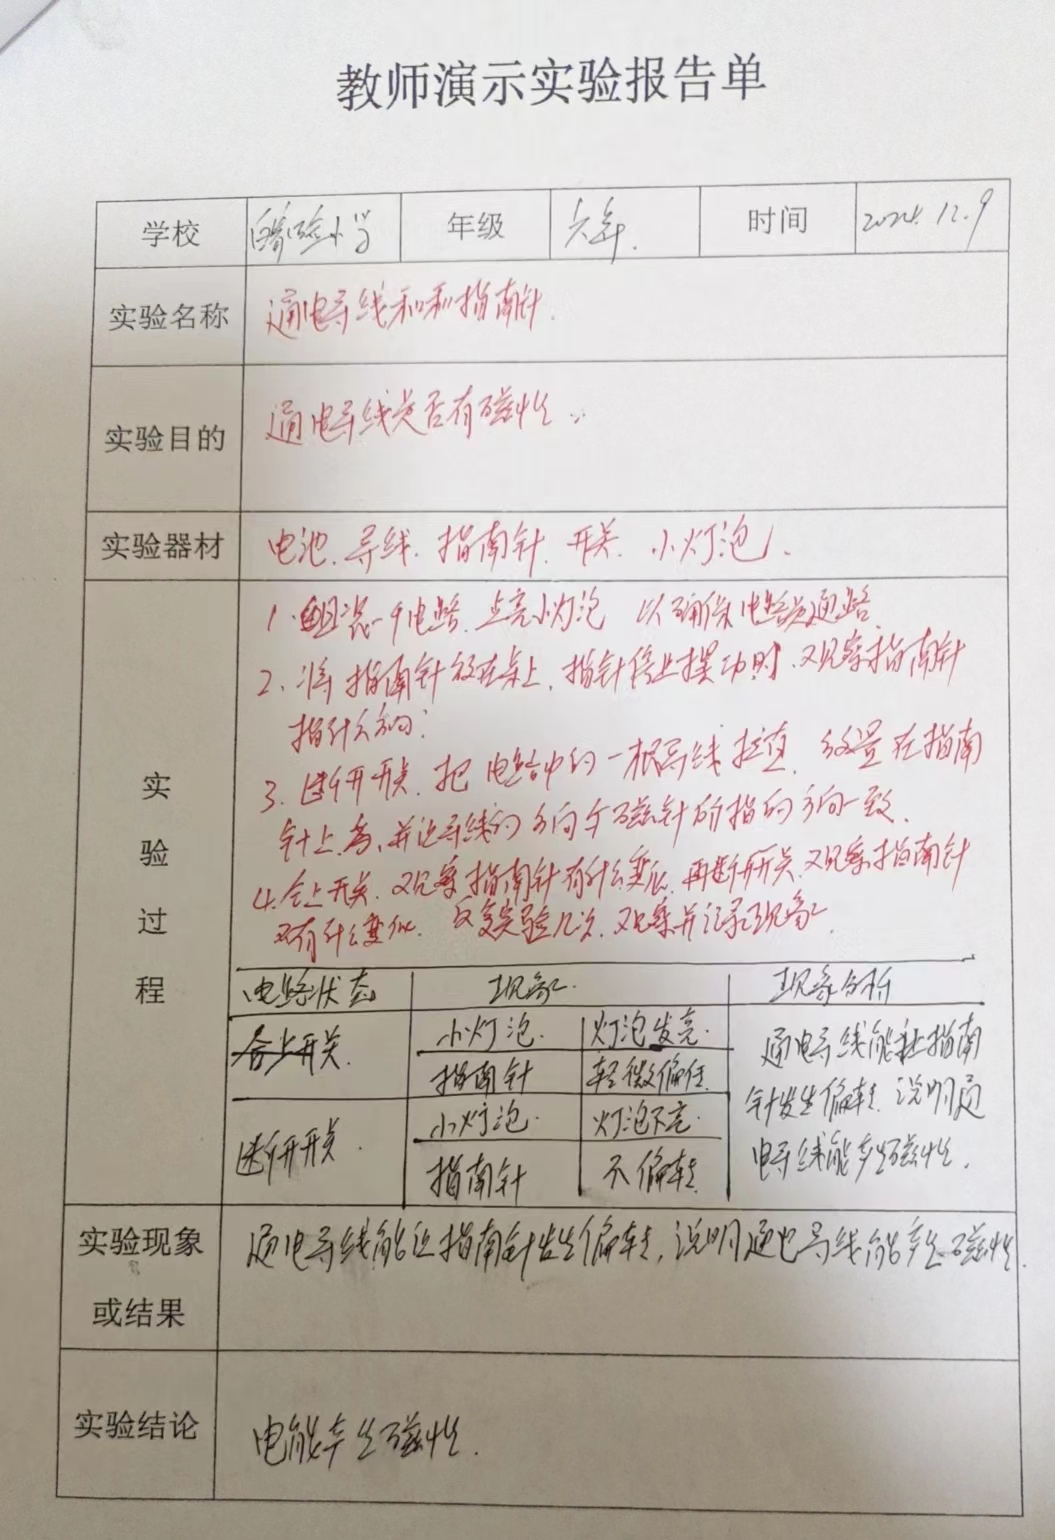 教师演示实验报告单
学校 实验小学 年级 六年 时间 2024.12.9
实验名称 通电导线和和指南针.
实验目的 通电导线是否有磁性
实验器材 电池、导线、指南针、开关、小灯泡.
实验过程
1.组装一个电路、点亮小灯泡 以确保电路是通路.
2、将指南针放在桌上、指针停止摆动时、观察指南针
指什么方向;
3、断开开关、把电路中的一根导线拉直、放置在指南
针上方、并让导线的方向与磁针所指的方向一致.
4.合上开关、观察指南针有什么变化、再断开开关、观察指南针
又有什么变化. 反复实验几次、观察并记录现象.
电路状态 现象 现象分析
合上开关. 小灯泡. 灯泡发亮.
指南针 轻微偏转
断开开关. 小灯泡. 灯泡不亮.
指南针 不偏转
通电导线能让指南
针发生偏转、说明通
电导线能产生磁性.
实验现象
或结果
通电导线能让指南针发生偏转,说明通电导线能产生磁性.
实验结论 电能产生磁性.